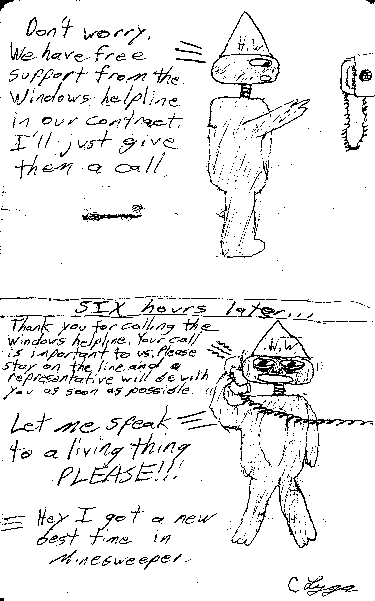 Don't worry.
We have free
support from the
Windows helpline
in our contract.
I'll just give
them a call.
W.W
SIX hours later...
Thank you for calling the
Windows helpline. Your call
is important to us. Please
stay on the line and a
representative will be with
you as soon as possible.
W.W
Let me speak
to a living thing
PLEASE!!!
Hey I got a new
best time in
Minesweeper.